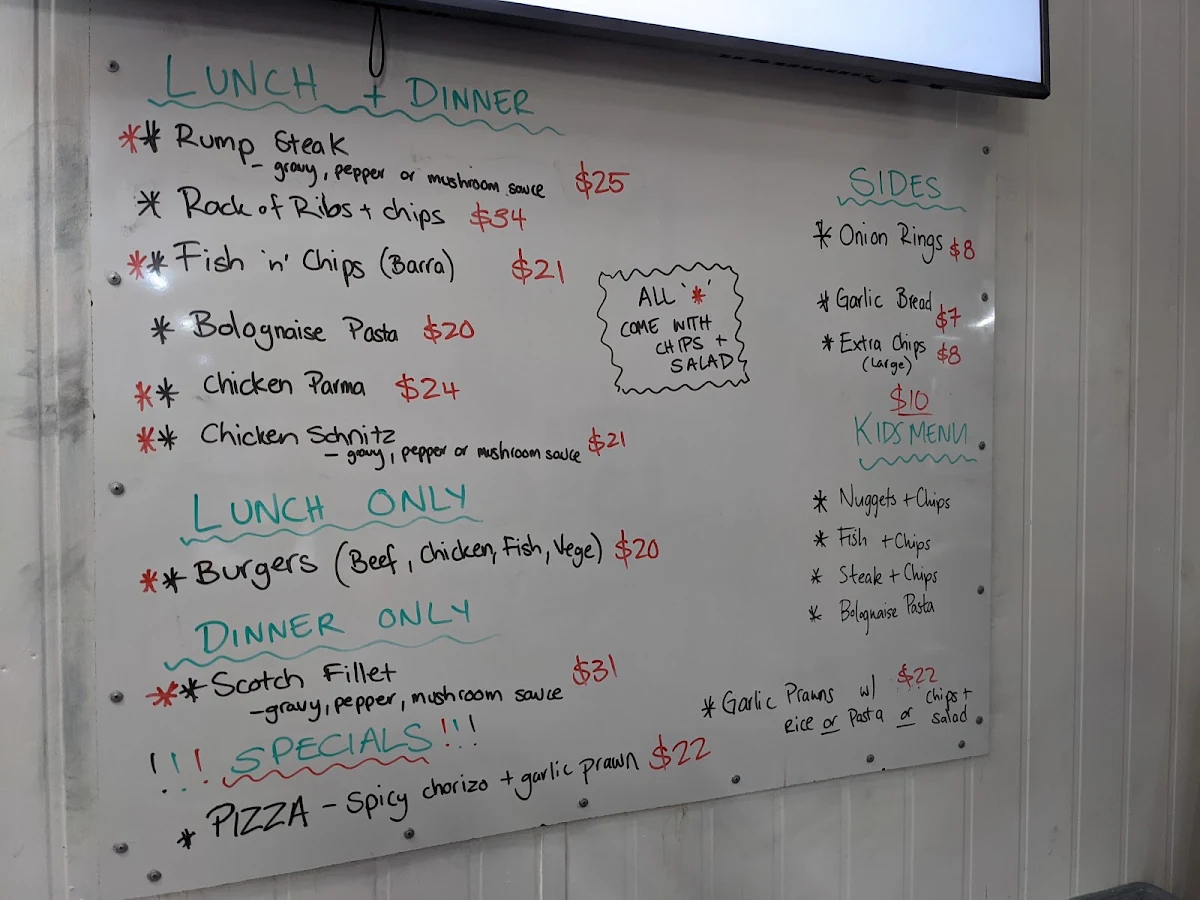 LUNCH + DINNER
** Rump Steak
- gravy, pepper or mushroom sauce $25
* Rack of Ribs + chips $34
** Fish 'n' Chips (Barra) $21
* Bolognaise Pasta $20
** Chicken Parma $24
** Chicken Schnitz
- gravy, pepper or mushroom sauce $21
ALL '*'
COME WITH
CHIPS +
SALAD
LUNCH ONLY
** Burgers (Beef, Chicken, Fish, Vege) $20
DINNER ONLY
** Scotch Fillet $31
- gravy, pepper, mushroom sauce
!!! SPECIALS !!!
* PIZZA - Spicy chorizo + garlic prawn $22
SIDES
* Onion Rings $8
* Garlic Bread $7
* Extra Chips $8
(Large)
$10
KIDS MENU
* Nuggets + Chips
* Fish + Chips
* Steak + Chips
* Bolognaise Pasta
* Garlic Prawns w/ $22
Rice or Pasta or chips + salad